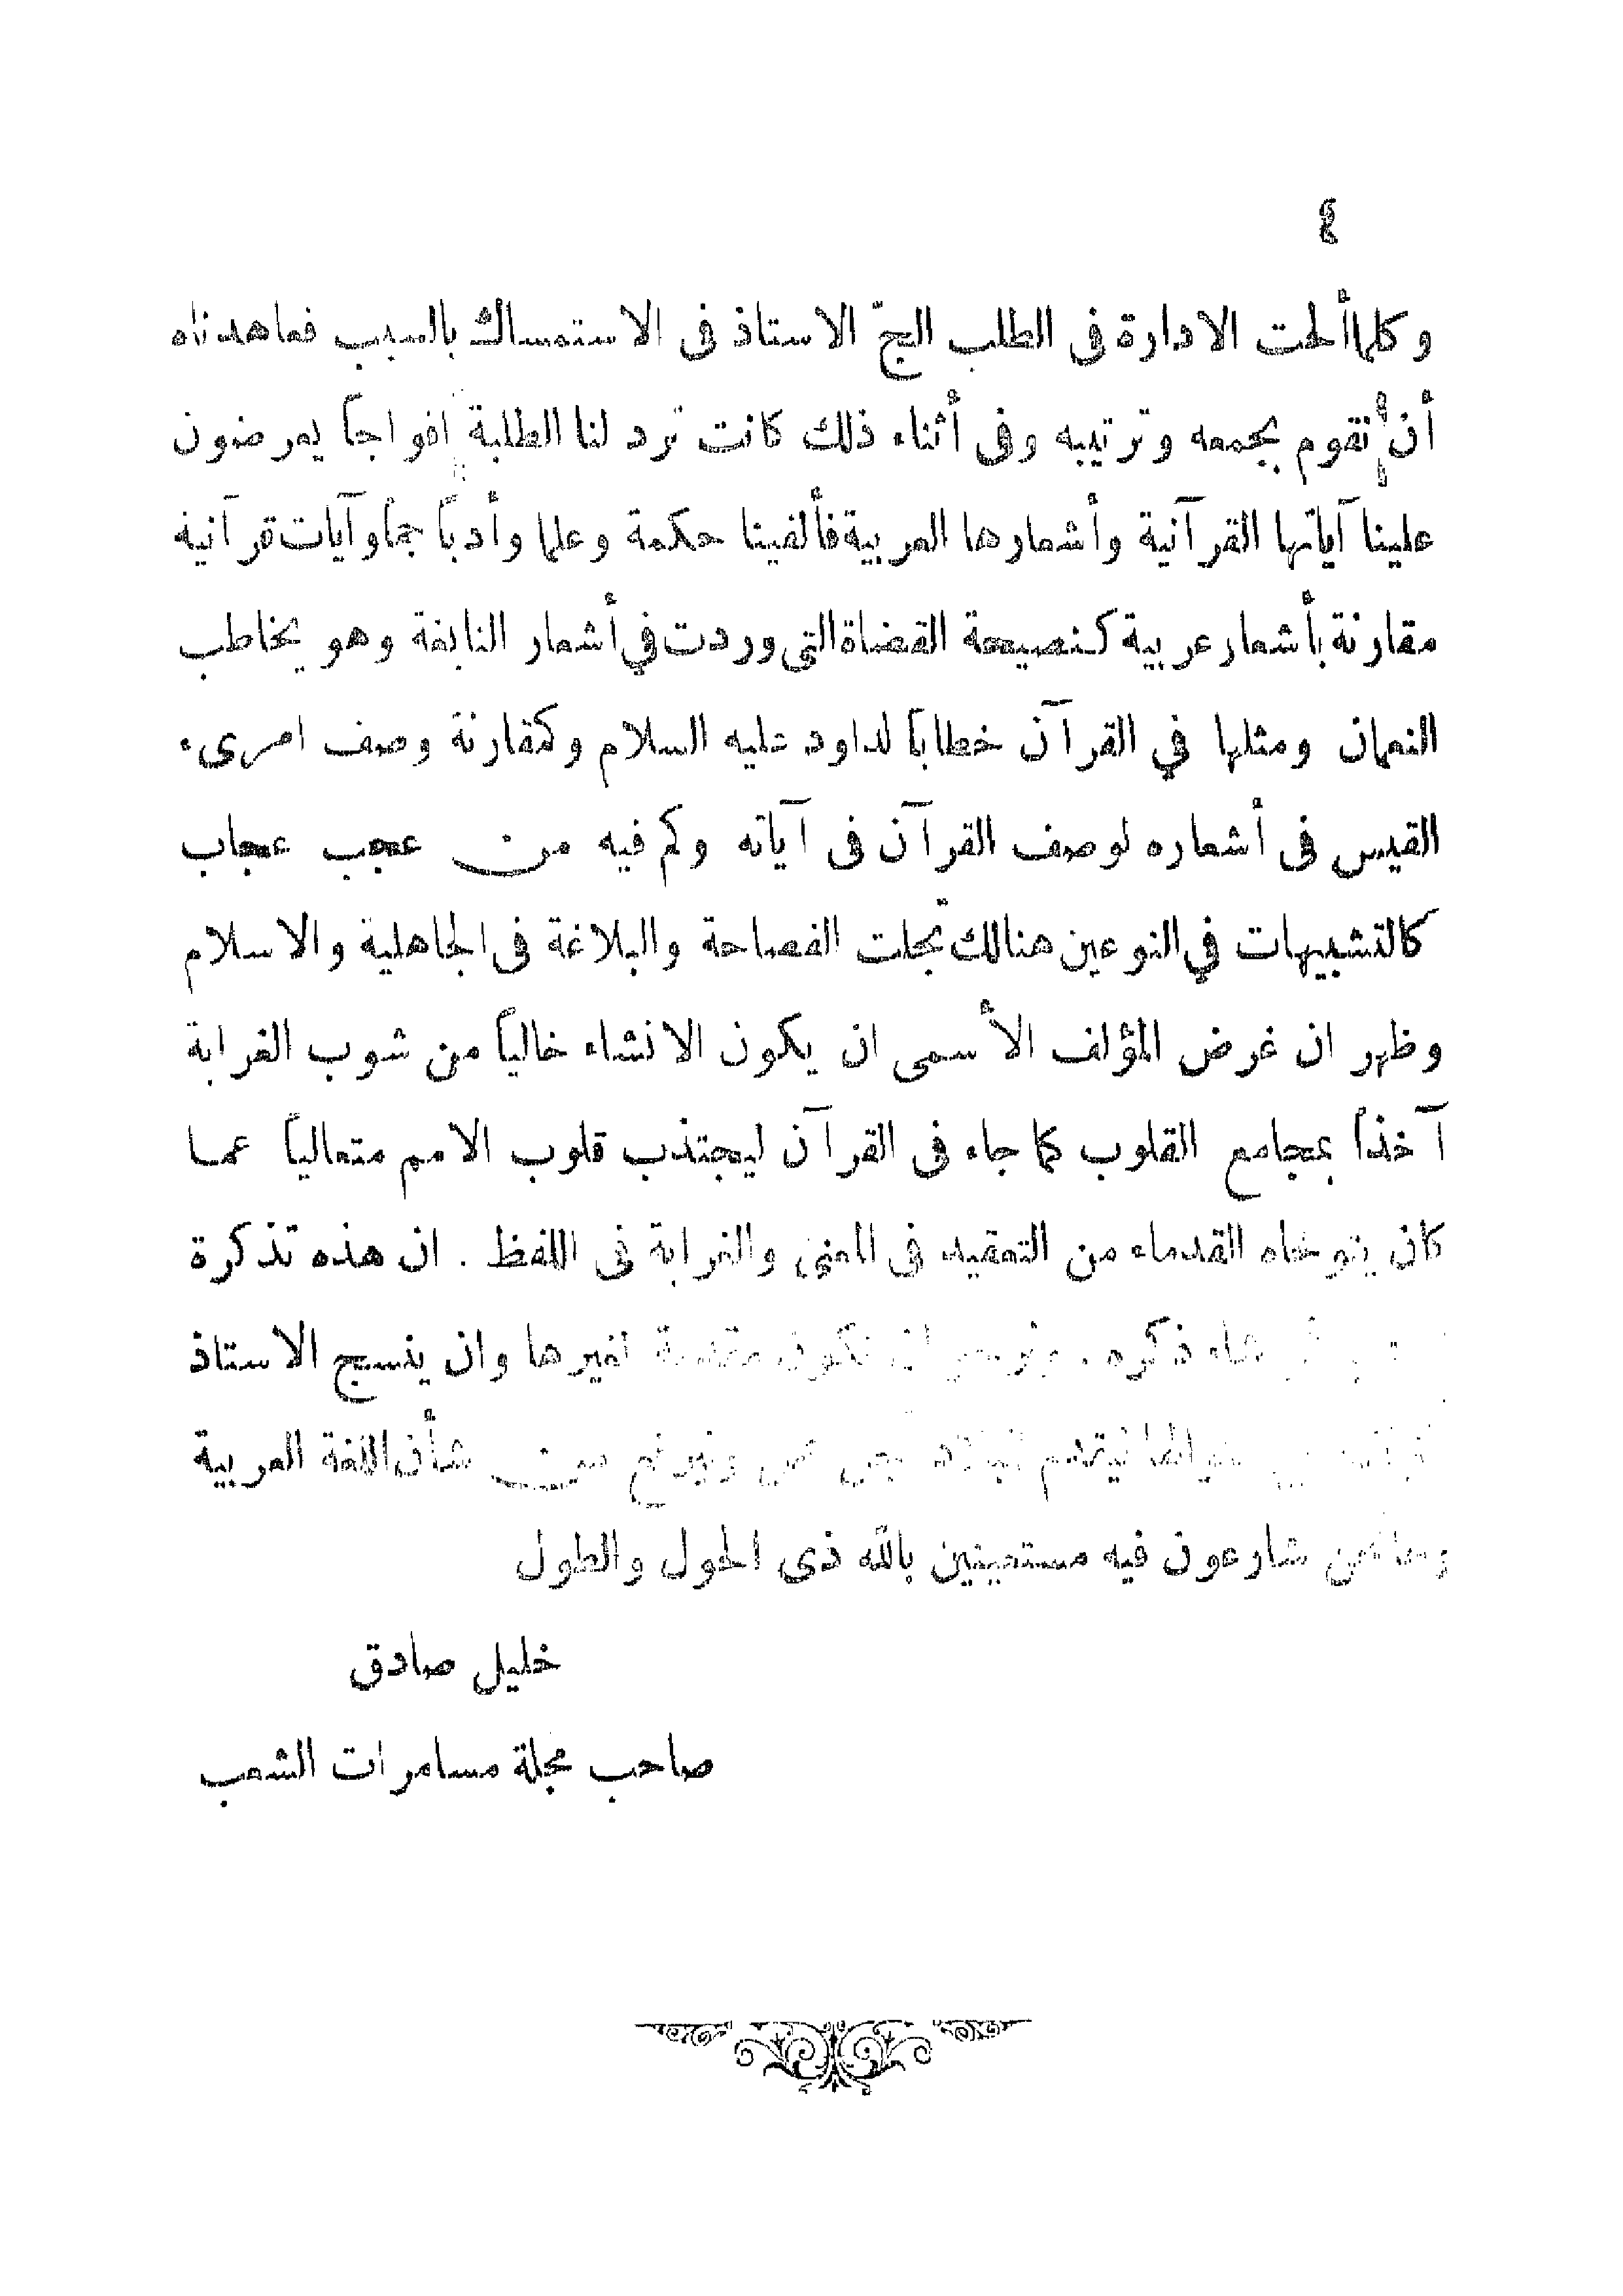 ٤
وكلما ألحت الادارة فى الطلب الجّ الاستاذ فى الاستمساك بالسبب فعاهدناه
أن نقوم بجمعه وترتيبه وفى أثناء ذلك كانت ترد لنا الطلبة افواجاً يعرضون
علينا آياتها القرآنية وأشعارها العربية فألفينا حكمة وعلما وأدباً جماً وآيات قرآنية
مقارنة بأشعار عربية كنصيحة القضاة التى وردت في أشعار النابغة وهو يخاطب
النعمان ومثلها في القرآن خطاباً لداود عليه السلام وكمقارنة وصف امرىء
القيس فى أشعاره لوصف القرآن فى آياته وكم فيه من عجب عجاب
كالتشبيهات في النوعين هنالك تجلت الفصاحة والبلاغة فى الجاهلية والاسلام
وظهر ان غرض المؤلف الأسمى ان يكون الانشاء خالياً من شوب الغرابة
آخذاً بمجامع القلوب كما جاء فى القرآن ليجتذب قلوب الامم متعالياً عما
كان يتوخاه القدماء من التعقيد فى المعنى والغرابة فى اللفظ . ان هذه تذكرة
شاء ذكره . ونرجو ان تكون مقدمة لغيرها وان ينسج الاستاذ
منوالها ليتقدم شأن اللغة العربية
وها نحن شارعون فيه مستعينين بالله ذى الحول والطول
خليل صادق
صاحب مجلة مسامرات الشعب